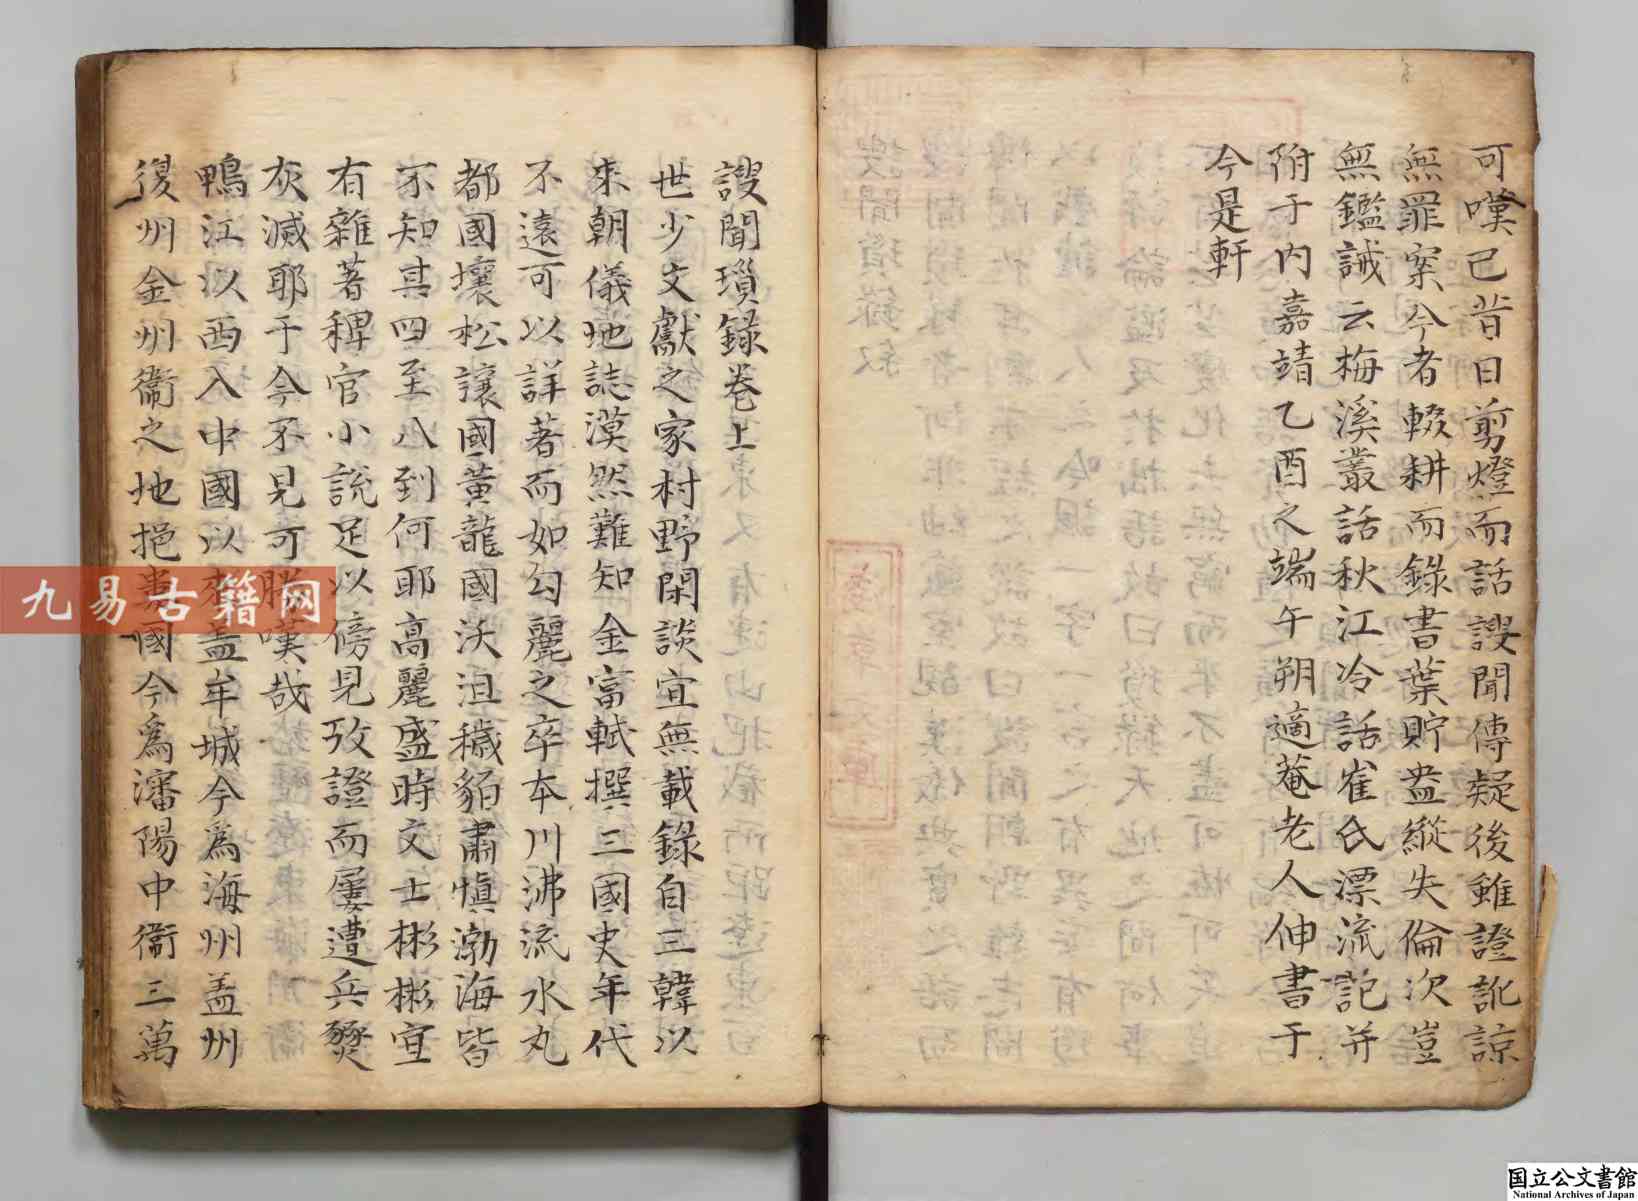 可嘆已昔日剪燈而話謏聞傳疑後雖證訛諒
無罪案今者輟耕而錄書葉貯盎縱失倫次豈
無鑑誡云梅溪叢話秋江冷話崔氏漂流記并
附于内嘉靖乙酉之端午朔適菴老人伸書于
今是軒
謏聞瑣錄卷上
世少文獻之家村野閑談宜無載錄自三韓以
來朝儀地誌漠然難知金富軾撰三國史年代
不遠可以詳著而如勾麗之卒本川沸流水丸
都國壤松讓國黃龍國沃沮穢貊肅愼渤海皆
不知其四至八到何耶高麗盛時文士彬彬宜
有雜著稗官小說足以傍見攷證而屢遭兵燹
灰滅耶于今不見可勝嘆哉
鴨江以西入中國以來盖牟城今爲海州盖州
復州金州衞之地挹婁國今爲瀋陽中衞三萬
九易古籍网
国立公文書館
National Archives of Japan